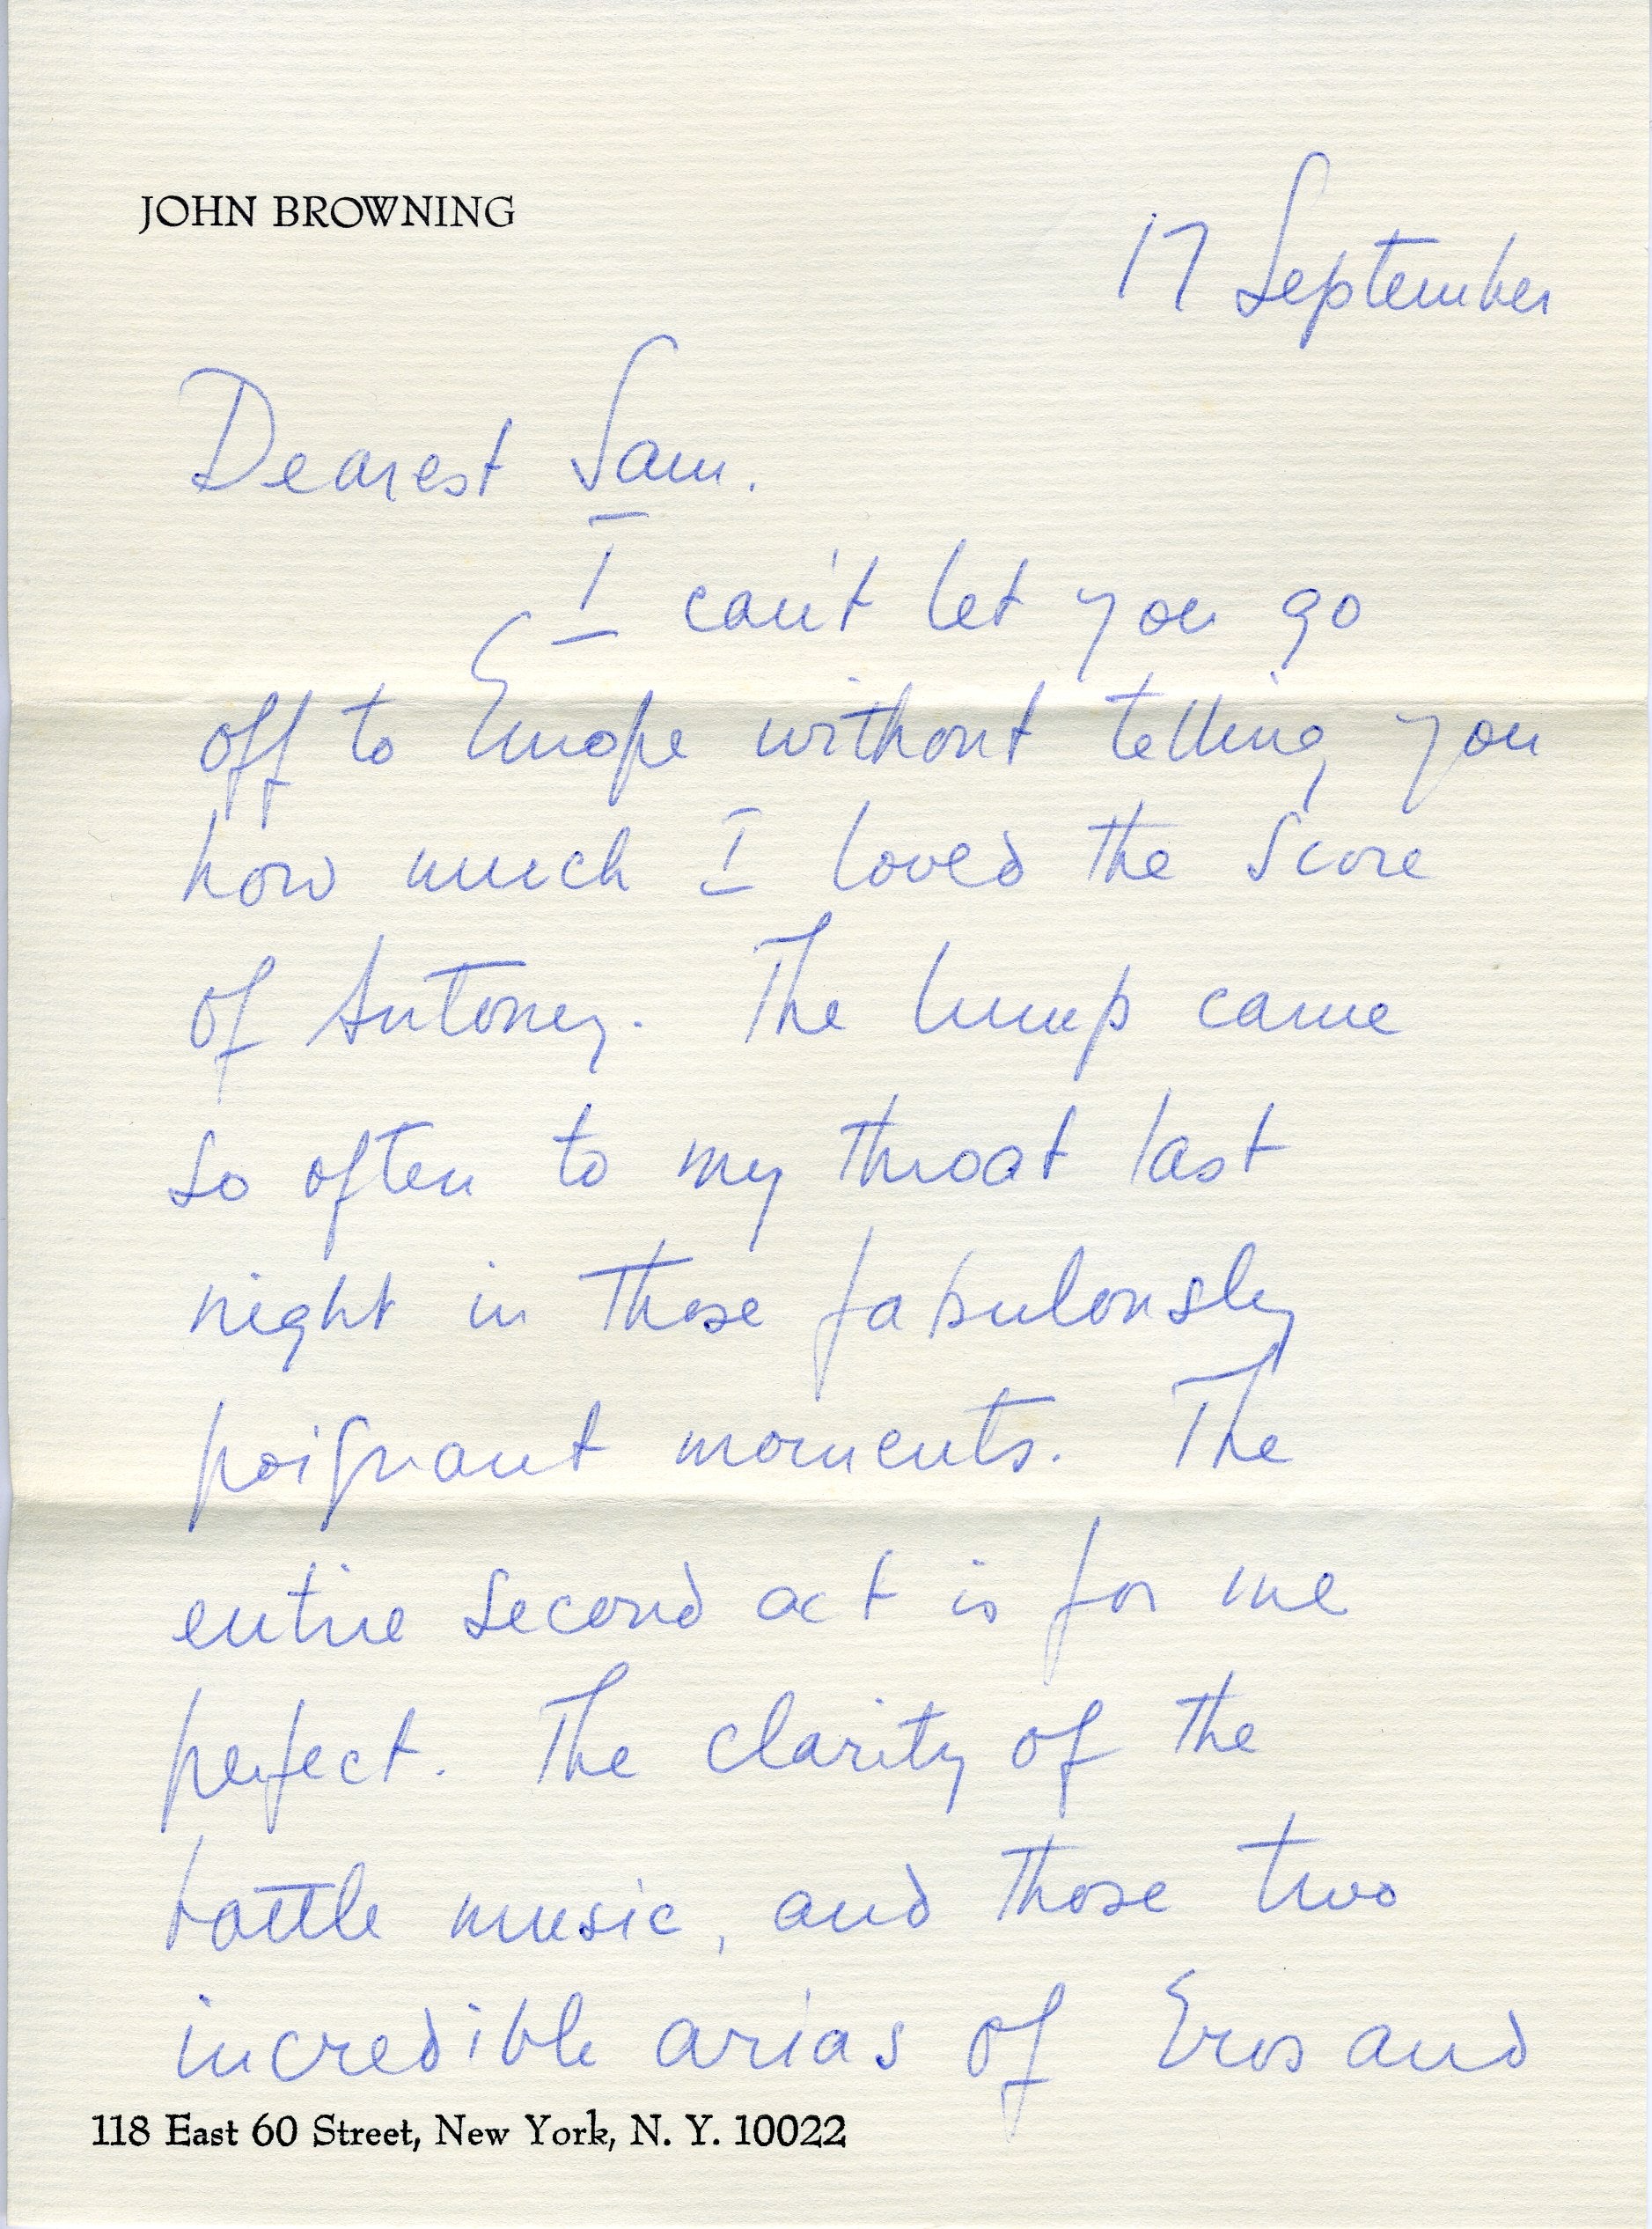 JOHN BROWNING
17 September
Dearest Sam.
I can't let you go
off to Europe without telling you
how much I loved the score
of Antony. The lump came
so often to my throat last
night in those fabulously
poignant moments. The
entire second act is for me
perfect. The clarity of the
battle music, and those two
incredible arias of Eros and
118 East 60 Street, New York, N. Y. 10022